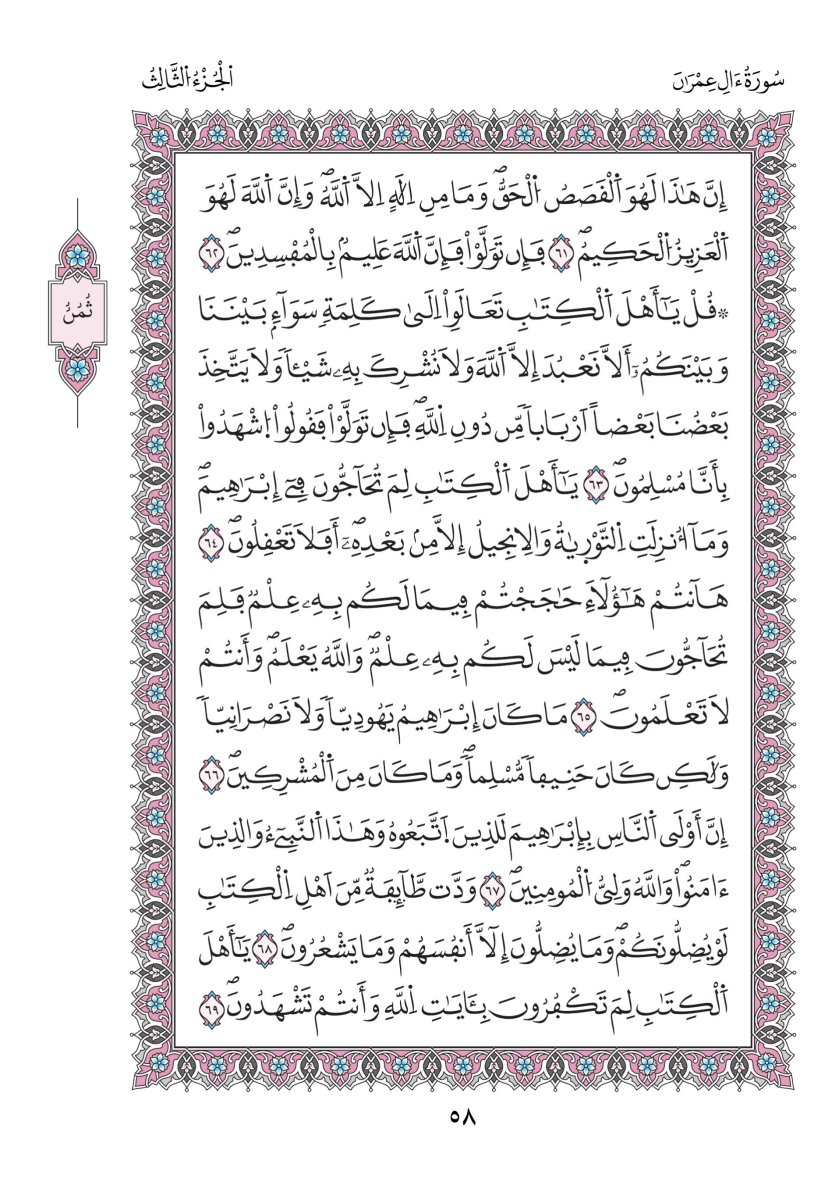 سُورَةُ ءَالِ عِمْرَٰنَ
اَلْجُزْءُ اَلثَّالِثُ
إِنَّ هَٰذَا لَهُوَ اَ۬لْقَصَصُ اُ۬لْحَقُّۖ وَمَا مِنِ اِلَٰهٍ اِلَّا اَ۬للَّهُۖ وَإِنَّ اَ۬للَّهَ لَهُوَ
اَ۬لْعَزِيزُ اُ۬لْحَكِيمُۖ ٦١ فَإِن تَوَلَّوْاْ فَإِنَّ اَ۬للَّهَ عَلِيمُۢ بِالْمُفْسِدِينَۖ ٦٢
۞قُلْ يَٰٓأَهْلَ اَ۬لْكِتَٰبِ تَعَالَوِاْ اِلَىٰ كَلِمَةٖ سَوَآءِۢ بَيْنَنَا
وَبَيْنَكُمُۥٓ أَلَّا نَعْبُدَ إِلَّا اَ۬للَّهَ وَلَا نُشْرِكَ بِهِۦ شَيْـٔاٗ وَلَا يَتَّخِذَ
بَعْضُنَا بَعْضاً اَرْبَاباٗ مِّن دُونِ اِ۬للَّهِۖ فَإِن تَوَلَّوْاْ فَقُولُواْ اُ۪شْهَدُواْ
بِأَنَّا مُسْلِمُونَۖ ٦٣ يَٰٓأَهْلَ اَ۬لْكِتَٰبِ لِمَ تُحَآجُّونَ فِےٓ إِبْرَٰهِيمَۖ
وَمَآ أُنزِلَتِ اِ۬لتَّوْرَيٰةُ وَالِانجِيلُ إِلَّا مِنۢ بَعْدِهِۦٓۖ أَفَلَا تَعْقِلُونَۖ ٦٤
هَٰٓانتُمْ هَٰٓؤُلَآءِ حَٰجَجْتُمْ فِيمَا لَكُم بِهِۦ عِلْمٞ فَلِمَ
تُحَآجُّونَ فِيمَا لَيْسَ لَكُم بِهِۦ عِلْمٞۖ وَاللَّهُ يَعْلَمُۖ وَأَنتُمْ
لَا تَعْلَمُونَۖ ٦٥ مَا كَانَ إِبْرَٰهِيمُ يَهُودِيّاٗ وَلَا نَصْرَانِيّاٗ
وَلَٰكِن كَانَ حَنِيفاٗ مُّسْلِماٗۖ وَمَا كَانَ مِنَ اَ۬لْمُشْرِكِينَۖ ٦٦
إِنَّ أَوْلَى اَ۬لنَّاسِ بِإِبْرَٰهِيمَ لَلذِينَ اَ۪تَّبَعُوهُ وَهَٰذَا اَ۬لنَّبِےٓءُ وَالذِينَ
ءَامَنُواْۖ وَاللَّهُ وَلِيُّ اُ۬لْمُومِنِينَۖ ٦٧ وَدَّت طَّآئِفَةٞ مِّنَ اَهْلِ اِ۬لْكِتَٰبِ
لَوْ يُضِلُّونَكُمْۖ وَمَا يُضِلُّونَ إِلَّا أَنفُسَهُمْ وَمَا يَشْعُرُونَۖ ٦٨ يَٰٓأَهْلَ
اَ۬لْكِتَٰبِ لِمَ تَكْفُرُونَ بِـَٔايَٰتِ اِ۬للَّهِ وَأَنتُمْ تَشْهَدُونَۖ ٦٩
ثُمُنُ
٥٨